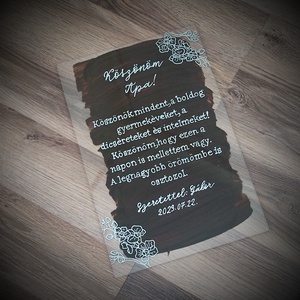 Köszönöm
Apa!
Köszönök mindent, a boldog
gyermekéveket, a
dicséreteket és intelmeket!
Köszönöm, hogy ezen a
napon is mellettem vagy.
A legnagyobb örömömbe is
osztozol.
Szeretettel: Gábor
2023.07.22.